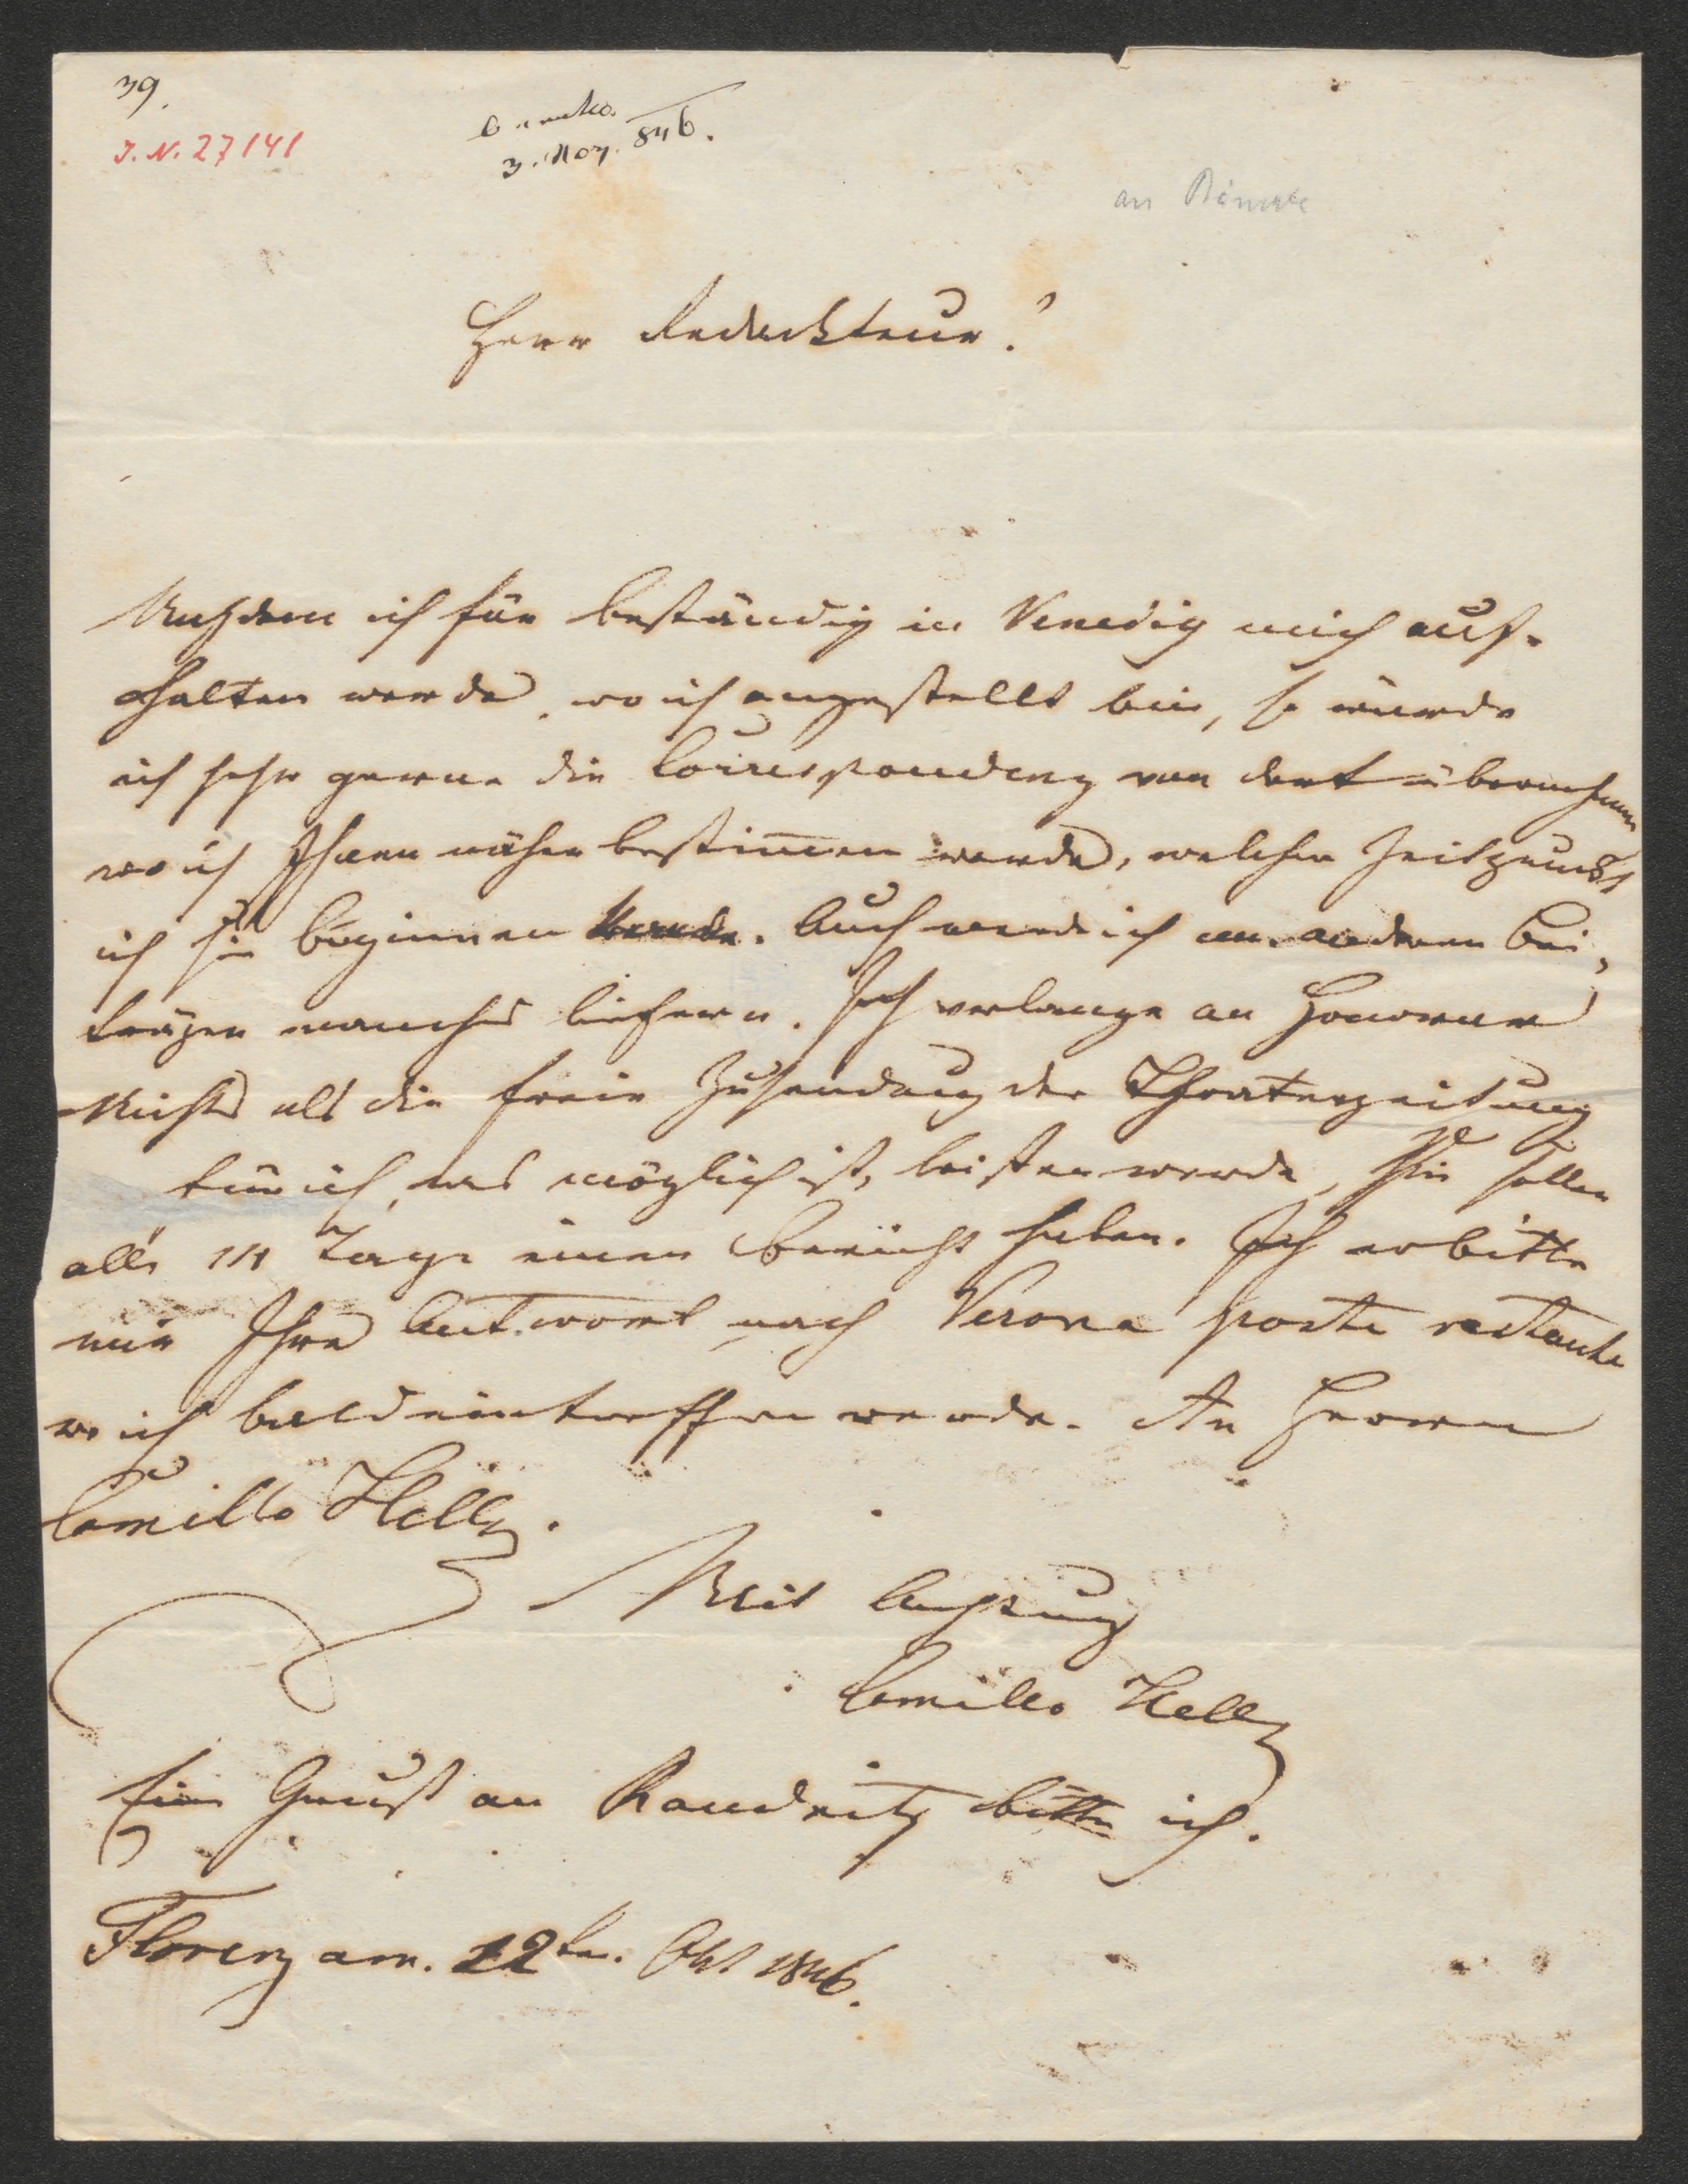 39.
I. N. 27141
3. Nov. 846.
an Bäuerle
Herr Redackteur!
Nachdem ich für beständig in Venedig mich auf-
halten werde, wo ich angestellt bin, so würde
ich sehr gerne die Correspondenz von dort übernehmen
wo ich Ihnen näher bestimmen werde, welchen Zeitpunkt
ich sie beginnen werde. Auch werde ich an anderen Bei-
trägen manches liefern. Ich verlange an Honorar
Nichts als die freie Zusendung der Theaterzeitung
für ich, was möglich ist, leisten werde, Sie sollen
alle 14 Tage einen Bericht haben. Ich erbitte
mir Ihre Antwort nach Verona poste restante
wo ich bald eintreffen werde. An Herrn
Camillo Hell.
Mit Achtung
Camillo Hell
Ein Gruß an Raudnitz bitte ich.
Florenz am. 12ten. Okt 1846.